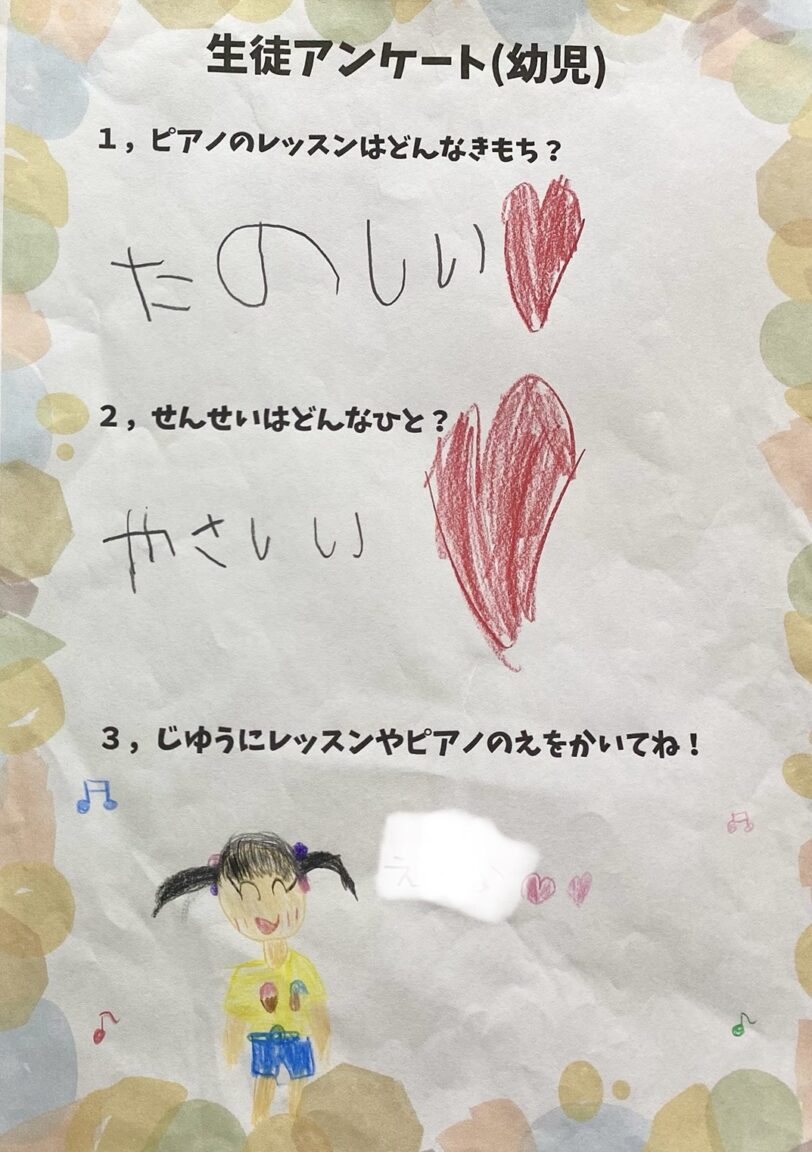 生徒アンケート(幼児)
1，ピアノのレッスンはどんなきもち？
たのしい
2，せんせいはどんなひと？
やさしい
3，じゆうにレッスンやピアノのえをかいてね！